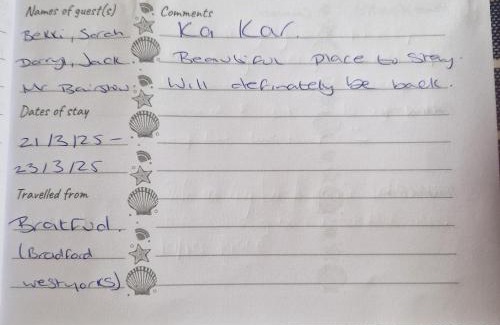 Names of guest(s)
Bekki, Sarah
Darryl, Jack
Mr Bairstow
Dates of stay
21/3/25 -
23/3/25
Travelled from
Bratfud.
(Bradford
westyorks)
Comments
Ka Kar.
Beautiful place to stay.
Will definately be back.